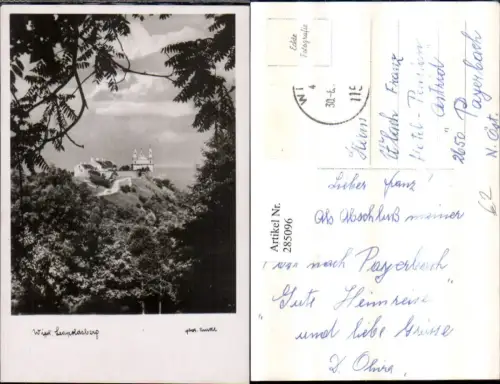 Wien Leopoldsberg
phot.
Echte
Fotografie
Wi
4
30.6.
115
Herrn
Franz
Hotel - Pension
2650 Payerbach
N. Öst.
62
Artikel Nr.
285096
Lieber Franz!
Als Abschluß meiner
nach Payerbach
"Gute Heimreise"
und liebe Grüsse
D.